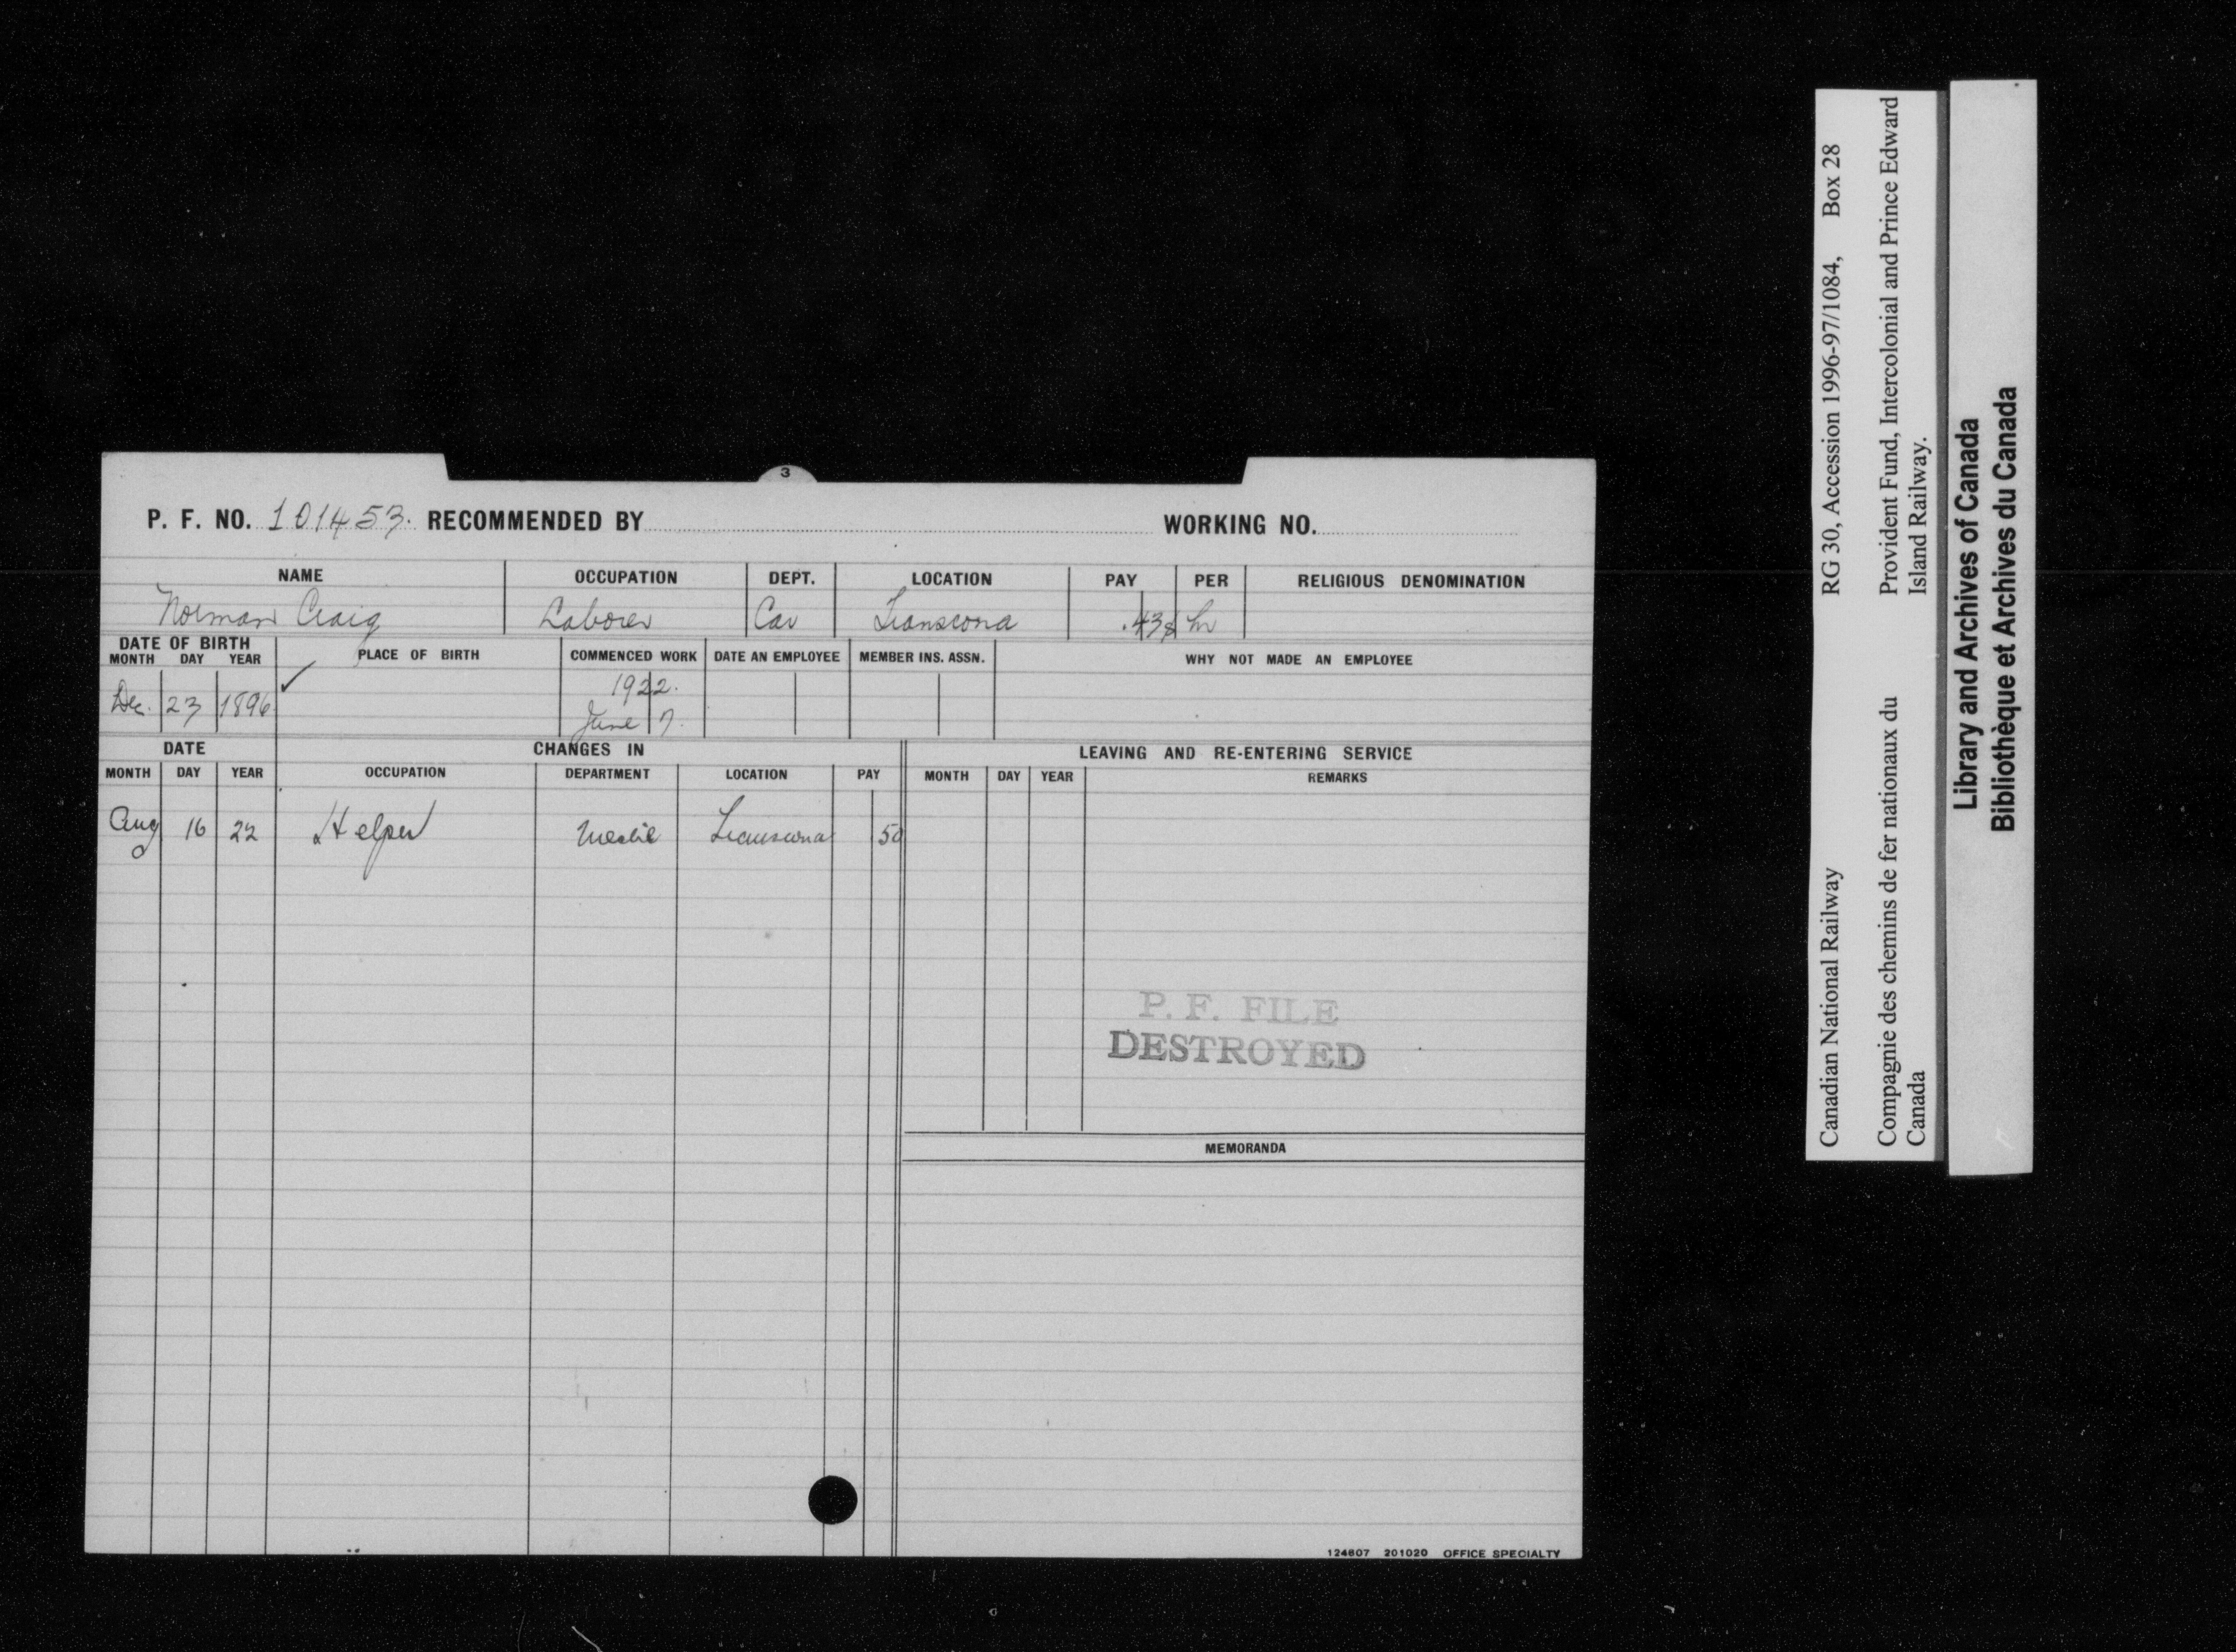 3
P. F. NO. 101453. RECOMMENDED BY WORKING NO.
NAME OCCUPATION DEPT. LOCATION PAY PER RELIGIOUS DENOMINATION
Norman Craig Laborer Car Transcona .43 hr
DATE OF BIRTH PLACE OF BIRTH COMMENCED WORK DATE AN EMPLOYEE MEMBER INS. ASSN. WHY NOT MADE AN EMPLOYEE
MONTH DAY YEAR
1922.
Dec. 23 1896 ✓
June 7.
DATE CHANGES IN LEAVING AND RE-ENTERING SERVICE
MONTH DAY YEAR OCCUPATION DEPARTMENT LOCATION PAY MONTH DAY YEAR REMARKS
Aug 16 22 Helper Transcona 50
P. F. FILE
DESTROYED
MEMORANDA
124607 201020 OFFICE SPECIALTY
Canadian National Railway RG 30, Accession 1996-97/1084, Box 28
Compagnie des chemins de fer nationaux du Provident Fund, Intercolonial and Prince Edward
Canada Island Railway.
Library and Archives of Canada
Bibliothèque et Archives du Canada